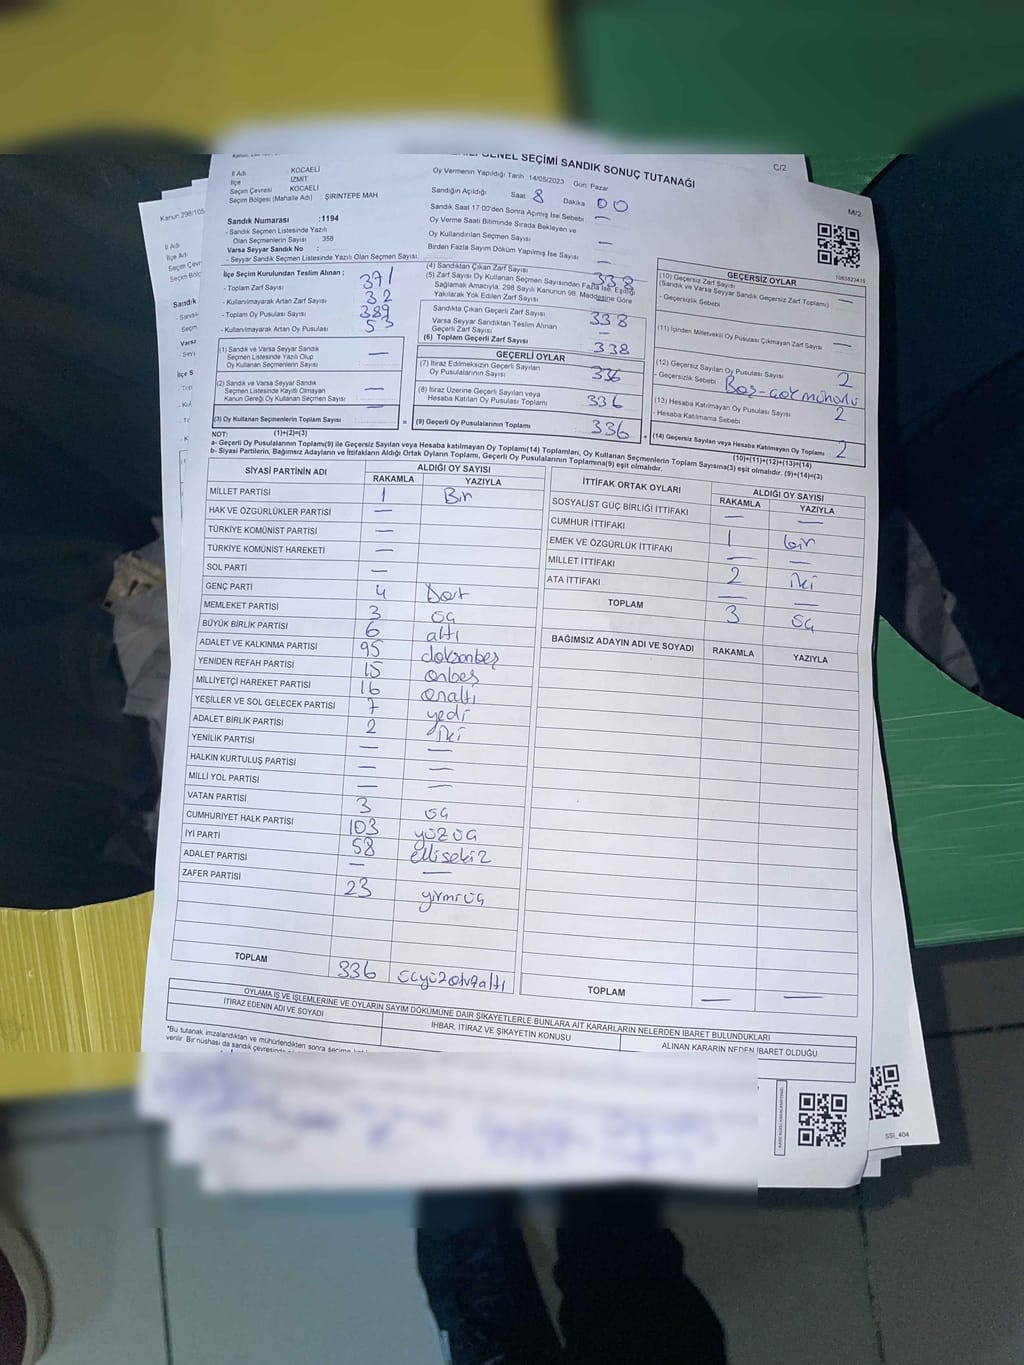 GENEL SEÇİMİ SANDIK SONUÇ TUTANAĞI
C/2
M/2
1065823415
İl Adı : KOCAELİ
İlçe : İZMİT
Seçim Çevresi : KOCAELİ
Seçim Bölgesi (Mahalle Adı) : ŞİRİNTEPE MAH
Oy Vermenin Yapıldığı Tarih 14/05/2023 Gün Pazar
Sandığın Açıldığı Saat 8 Dakika 00
Sandık Saat 17.00'den Sonra Açılmış İse Sebebi —
Oy Verme Saati Bitiminde Sırada Bekleyen ve
Oy Kullandırılan Seçmen Sayısı —
Birden Fazla Sayım Döküm Yapılmış İse Sayısı —
Sandık Numarası :1194
- Sandık Seçmen Listesinde Yazılı
Olan Seçmenlerin Sayısı : 358
Varsa Seyyar Sandık No :
- Seyyar Sandık Seçmen Listesinde Yazılı Olan Seçmen Sayısı:
İlçe Seçim Kurulundan Teslim Alınan ;
- Toplam Zarf Sayısı 371
- Kullanılmayarak Artan Zarf Sayısı 32
- Toplam Oy Pusulası Sayısı 389
- Kullanılmayarak Artan Oy Pusulası 53
(1) Sandık ve Varsa Seyyar Sandık
Seçmen Listesinde Yazılı Olup
Oy Kullanan Seçmenlerin Sayısı —
(2) Sandık ve Varsa Seyyar Sandık
Seçmen Listesinde Kayıtlı Olmayan
Kanun Gereği Oy Kullanan Seçmen Sayısı —
(3) Oy Kullanan Seçmenlerin Toplam Sayısı —
(1)+(2)=(3)
(4) Sandıktan Çıkan Zarf Sayısı 338
(5) Zarf Sayısı Oy Kullanan Seçmen Sayısından Fazla ise, Eşitliği
Sağlamak Amacıyla, 298 Sayılı Kanunun 98. Maddesine Göre
Yakılarak Yok Edilen Zarf Sayısı
Sandıkta Çıkan Geçerli Zarf Sayısı 338
Varsa Seyyar Sandıktan Teslim Alınan
Geçerli Zarf Sayısı —
(6) Toplam Geçerli Zarf Sayısı 338
GEÇERLİ OYLAR
(7) İtiraz Edilmeksizin Geçerli Sayılan
Oy Pusulalarının Sayısı 336
(8) İtiraz Üzerine Geçerli Sayılan veya
Hesaba Katılan Oy Pusulası Toplamı 336
(9) Geçerli Oy Pusulalarının Toplamı 336
GEÇERSİZ OYLAR
(10) Geçersiz Zarf Sayısı
(Sandık ve Varsa Seyyar Sandık Geçersiz Zarf Toplamı) —
- Geçersizlik Sebebi
(11) İçinden Milletvekili Oy Pusulası Çıkmayan Zarf Sayısı —
(12) Geçersiz Sayılan Oy Pusulası Sayısı 2
- Geçersizlik Sebebi Boş-çok mühürlü
(13) Hesaba Katılmayan Oy Pusulası Sayısı 2
- Hesaba Katılmama Sebebi
(14) Geçersiz Sayılan veya Hesaba Katılmayan Oy Toplamı 2
(10)+(11)+(12)+(13)=(14)
NOT:
a- Geçerli Oy Pusulalarının Toplamı(9) ile Geçersiz Sayılan veya Hesaba katılmayan Oy Toplamı(14) Toplamları, Oy Kullanan Seçmenlerin Toplam Sayısına(3) eşit olmalıdır. (9)+(14)=(3)
b- Siyasi Partilerin, Bağımsız Adayların ve İttifakların Aldığı Ortak Oyların Toplamı, Geçerli Oy Pusulalarının Toplamına(9) eşit olmalıdır.
SİYASİ PARTİNİN ADI ALDIĞI OY SAYISI
RAKAMLA YAZIYLA
MİLLET PARTİSİ 1 Bir
HAK VE ÖZGÜRLÜKLER PARTİSİ —
TÜRKİYE KOMÜNİST PARTİSİ —
TÜRKİYE KOMÜNİST HAREKETİ —
SOL PARTİ —
GENÇ PARTİ 4 Dört
MEMLEKET PARTİSİ 3 üç
BÜYÜK BİRLİK PARTİSİ 6 altı
ADALET VE KALKINMA PARTİSİ 95 doksanbeş
YENİDEN REFAH PARTİSİ 15 onbeş
MİLLİYETÇİ HAREKET PARTİSİ 16 onaltı
YEŞİLLER VE SOL GELECEK PARTİSİ 7 yedi
ADALET BİRLİK PARTİSİ 2 iki
YENİLİK PARTİSİ — —
HALKIN KURTULUŞ PARTİSİ — —
MİLLİ YOL PARTİSİ — —
VATAN PARTİSİ 3 üç
CUMHURİYET HALK PARTİSİ 103 yüzüç
İYİ PARTİ 58 ellisekiz
ADALET PARTİSİ — —
ZAFER PARTİSİ 23 yirmiüç
TOPLAM 336 üçyüzotuzaltı
İTTİFAK ORTAK OYLARI ALDIĞI OY SAYISI
RAKAMLA YAZIYLA
SOSYALİST GÜÇ BİRLİĞİ İTTİFAKI — —
CUMHUR İTTİFAKI 1 bir
EMEK VE ÖZGÜRLÜK İTTİFAKI — —
MİLLET İTTİFAKI 2 iki
ATA İTTİFAKI — —
TOPLAM 3 üç
BAĞIMSIZ ADAYIN ADI VE SOYADI RAKAMLA YAZIYLA
TOPLAM — —
OYLAMA İŞ VE İŞLEMLERİNE VE OYLARIN SAYIM DÖKÜMÜNE DAİR ŞİKAYETLERLE BUNLARA AİT KARARLARIN NELERDEN İBARET BULUNDUKLARI
İTİRAZ EDENİN ADI VE SOYADI İHBAR, İTİRAZ VE ŞİKAYETİN KONUSU ALINAN KARARIN NEDEN İBARET OLDUĞU
*Bu tutanak imzalandıktan ve mühürlendikten sonra seçime
verilir. Bir nüshası da sandık çevresinde
Kanun 298/105
İl Adı
İlçe Adı
SSİ_404